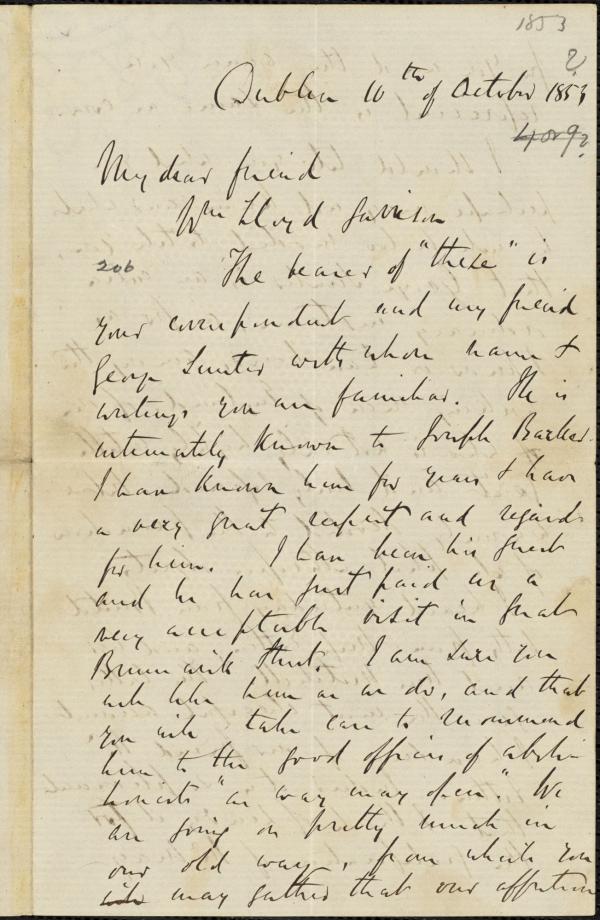 1853
?
Dublin 10th of October 1853
4 or 9?
My dear friend
Wm Lloyd Garrison
206 The bearer of "these" is
your correspondent and my friend
George Sunter with whose name &
writings you are familiar. He is
intimately known to Joseph Barker.
I have known him for years & have
a very great respect and regard
for him. I have been his guest
and he has just paid us a
very acceptable visit in Great
Brunswick Street. I am sure you
will like him as we do, and that
you will take care to recommend
him to the good offices of aboli-
tionists "as way may open." We
are going on pretty much in
our old way, from which you
may gather that our affection